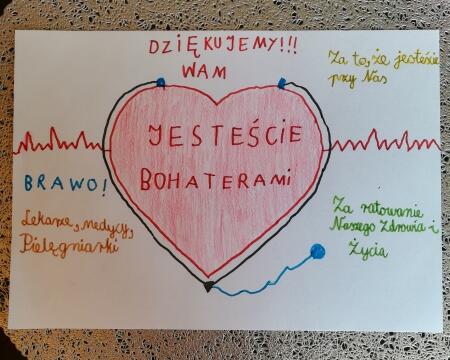 DZIĘKUJEMY!!!
WAM
Za to, że jesteście
przy Nas
JESTEŚCIE
BOHATERAMi
BRAWO!
Lekarze, medycy,
Pielęgniarki
Za ratowanie
Naszego Zdrowia i
Życia